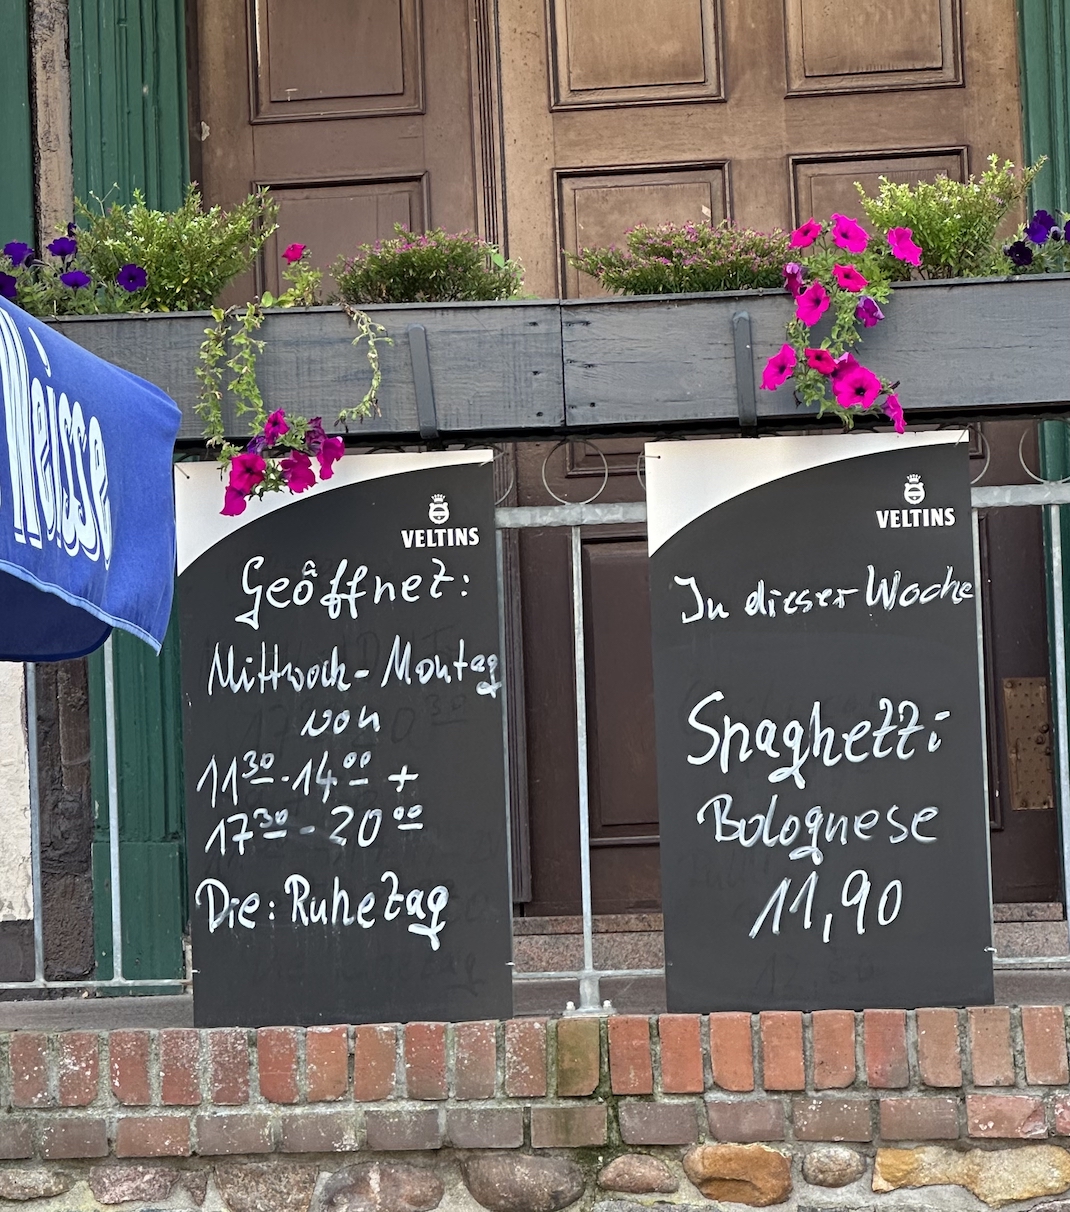 Weisse
VELTINS
Geöffnet:
Mittwoch - Montag
von
11³⁰ - 14⁰⁰ +
17³⁰ - 20⁰⁰
Die: Ruhetag
VELTINS
In dieser Woche
Spaghetti
Bolognese
11,90